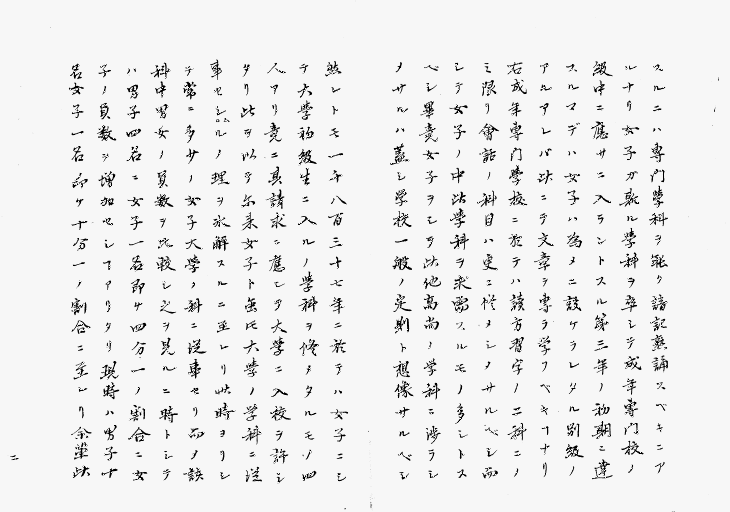 スルニハ専門學科ヲ能ク諳記熟誦スベキニア
ルナリ女子ガ斯ル學科ヲ卒シテ成年専門校ノ
級中ニ應サニ入ラントスル第三年ノ初期ニ達
スルマデハ女子ハ為メニ設ケラレタル別級ノ
アルアレバ此ニテ文章ヲ専ラ学フベキナリ
右成年専門學校ニ於テハ讀方習字ノ二科ニノ
ミ限リ會話ノ科目ハ更ニ修メシメサルベシ而
シテ女子ノ中此學科ヲ求需スルモノ多シトス
ベシ畢竟女子ヲシテ此他高尚ノ学科ニ渉ラシ
メサルハ蓋シ学校一般ノ定則ト想像サルベシ
然レトモ一千八百三十七年ニ於テハ女子ニシ
テ大學初級生ニ入ルノ學科ヲ修メタルモノ四
人アリ竟ニ其請求ニ應シテ大學ニ入校ヲ許シ
タリ此ヲ以テ尓来女子ト虽モ大學ノ学科ニ従
事セシムルノ理ヲ氷解スルニ至レリ此時ヨリシ
テ常ニ多少ノ女子大学ノ科ニ従事セリ而メ該
科中男女ノ員数ヲ比較シ之ヲ見ルニ時トシテ
ハ男子四名ニ女子一名即チ四分一ノ割合ニ女
子ノ員数ヲ増加セシ「アリタリ現時ハ男子十
名女子一名即チ十分一ノ割合ニ至レリ余輩此
二